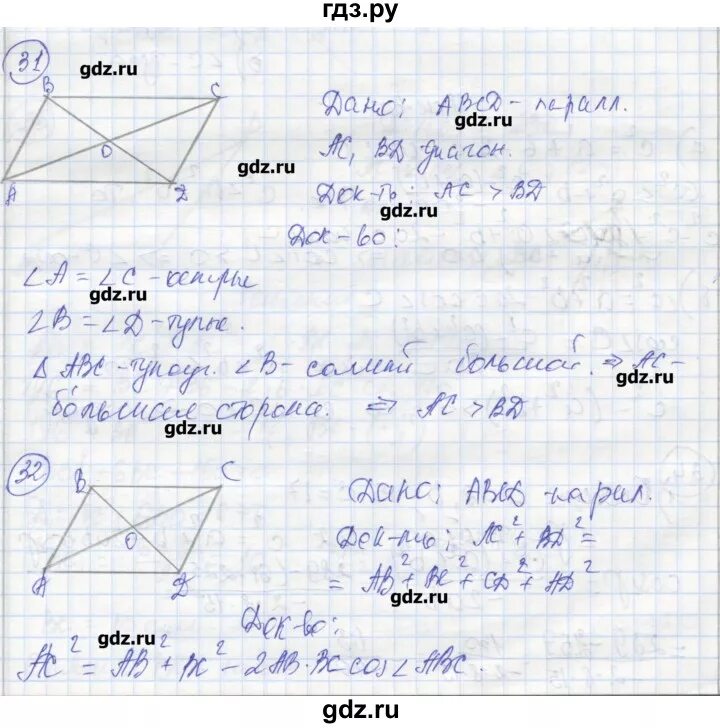 гдз.ру
31
gdz.ru
B
C
O
A
D
Дано: ABCD - паралл.
gdz.ru
AC, BD диагон.
gdz.ru
Док-ть: AC > BD
gdz.ru
Док-во:
∠A = ∠C - острые
gdz.ru
∠B = ∠D - тупые.
Δ ABC - тупоуг. ∠B - самый большой. ⇒ AC -
gdz.ru
большая сторона. ⇒ AC > BD
gdz.ru
32
gdz.ru
B
C
O
A
D
Дано: ABCD - парал.
gdz.ru
Док-ть: AC² + BD² =
= AB² + BC² + CD² + AD²
gdz.ru
Док-во:
gdz.ru
AC² = AB² + BC² - 2AB·BC cos∠ABC.
gdz.ru